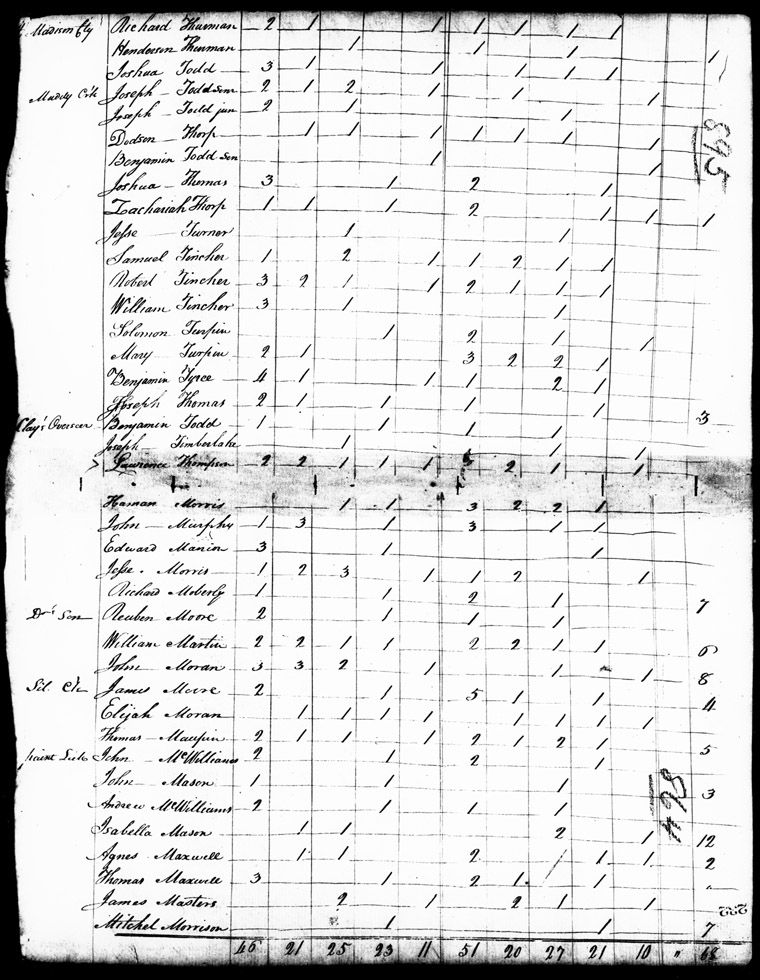 Madison Cty Richard Thurman 2 1 1 1 1 1 1
Henderson Thurman 1 1 1 1
Joshua Todd 3 1 1 1 1 1
Muddy Crk Joseph Todd Senr 2 1 2 1 1
Joseph Todd jun 2 1 1
Dodson Thorp 1 1 1 1 1 1 1
Benjamin Todd Sen 1 1
Joshua Thomas 3 1 2 1
Zachariah Thorp 1 1 1 2 1 1 1
Jesse Turner 1 1
Samuel Tincher 1 2 1 1 2 1 1
Robert Tincher 3 2 1 1 2 1 1 1
William Tincher 3 1 1
Solomon Turpin 1 2 1 1
Mary Turpin 2 1 3 2 2 1
Benjamin Tyree 4 1 1 1 2 1
Joseph Thomas 2 1 1 1 1
Clay's Overseer Benjamin Todd 1 1 1 1 3
Joseph Timberlake 1 1 1
Lawrence Thompson 2 2 1 1 1 3 2 1 1
895
Haman Morris 1 1 3 2 2 1
John Murphy 1 3 1 3 1 1
Edward Manin 3 1 1
Jesse Morris 1 2 3 1 1 2 1
Richard Moberly 1 1 2 1 7
Reuben Moore 2 1 1 1
William Martin 2 2 1 1 2 2 1 1 6
John Moran 3 3 2 1 1 1 8
James Moore 2 1 5 1 1 4
Elijah Moran 1 1 1 1 1 1 1 1
Thomas Maupin 2 1 1 1 2 1 2 1 5
John McWilliams 2 1 2 1
John Mason 1 1 1 3
Andrew McWilliams 2 1 1 1
Isabella Mason 1 1 2 1 12
Agnes Maxwell 1 1 2 1 1 1 2
Thomas Maxwell 3 1 2 1 1
James Masters 2 1 2 1 1
Mitchel Morrison 1 1 7
222
46 21 25 23 11 51 20 27 21 10 " 68